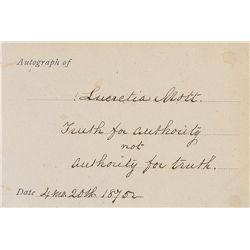 Autograph of
Lucretia Mott.
Truth for authority
not
authority for truth.
Date 4 mo. 20th 1870